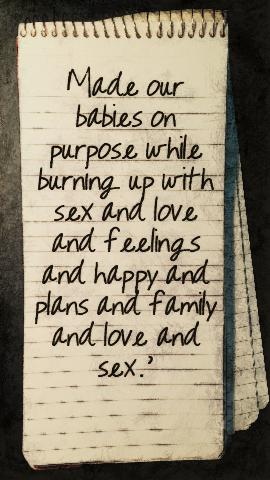 Made our
babies on
purpose while
burning up with
sex and love
and feelings
and happy and
plans and family
and love and
sex.'